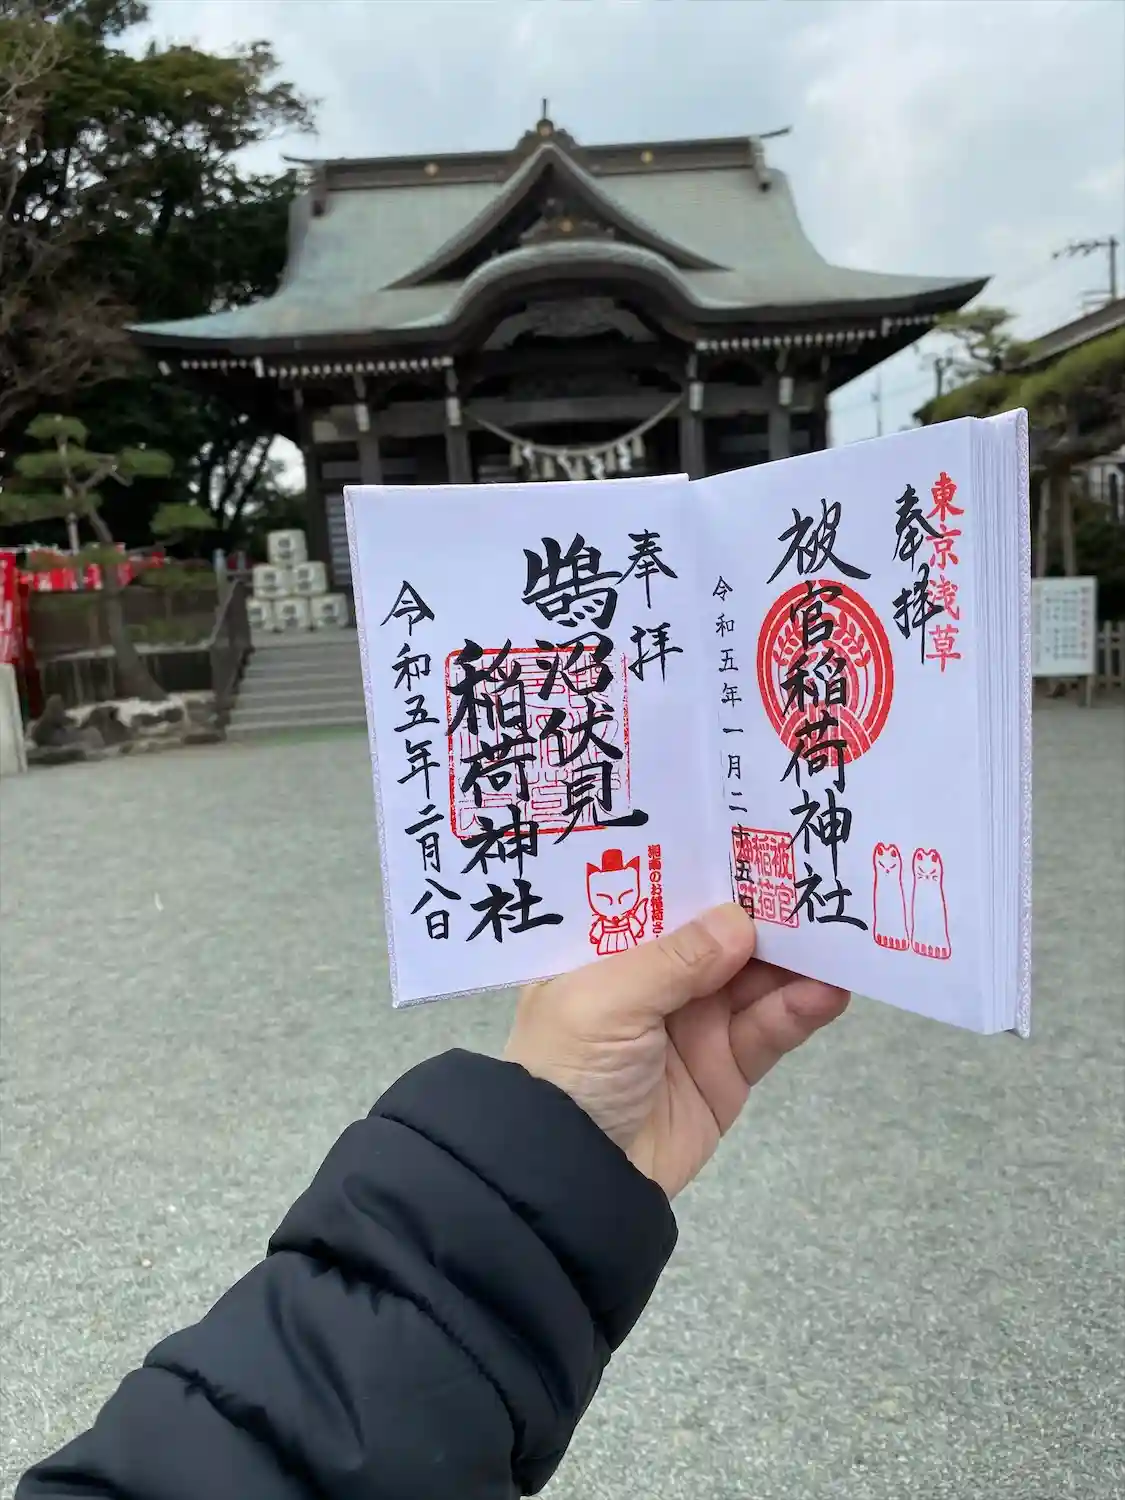 東京浅草
奉拝
被官稲荷神社
被官
稲荷
令和五年一月二十五日
奉拝
鵠沼伏見
稲荷神社
湘南のお稲荷さ
令和五年二月八日